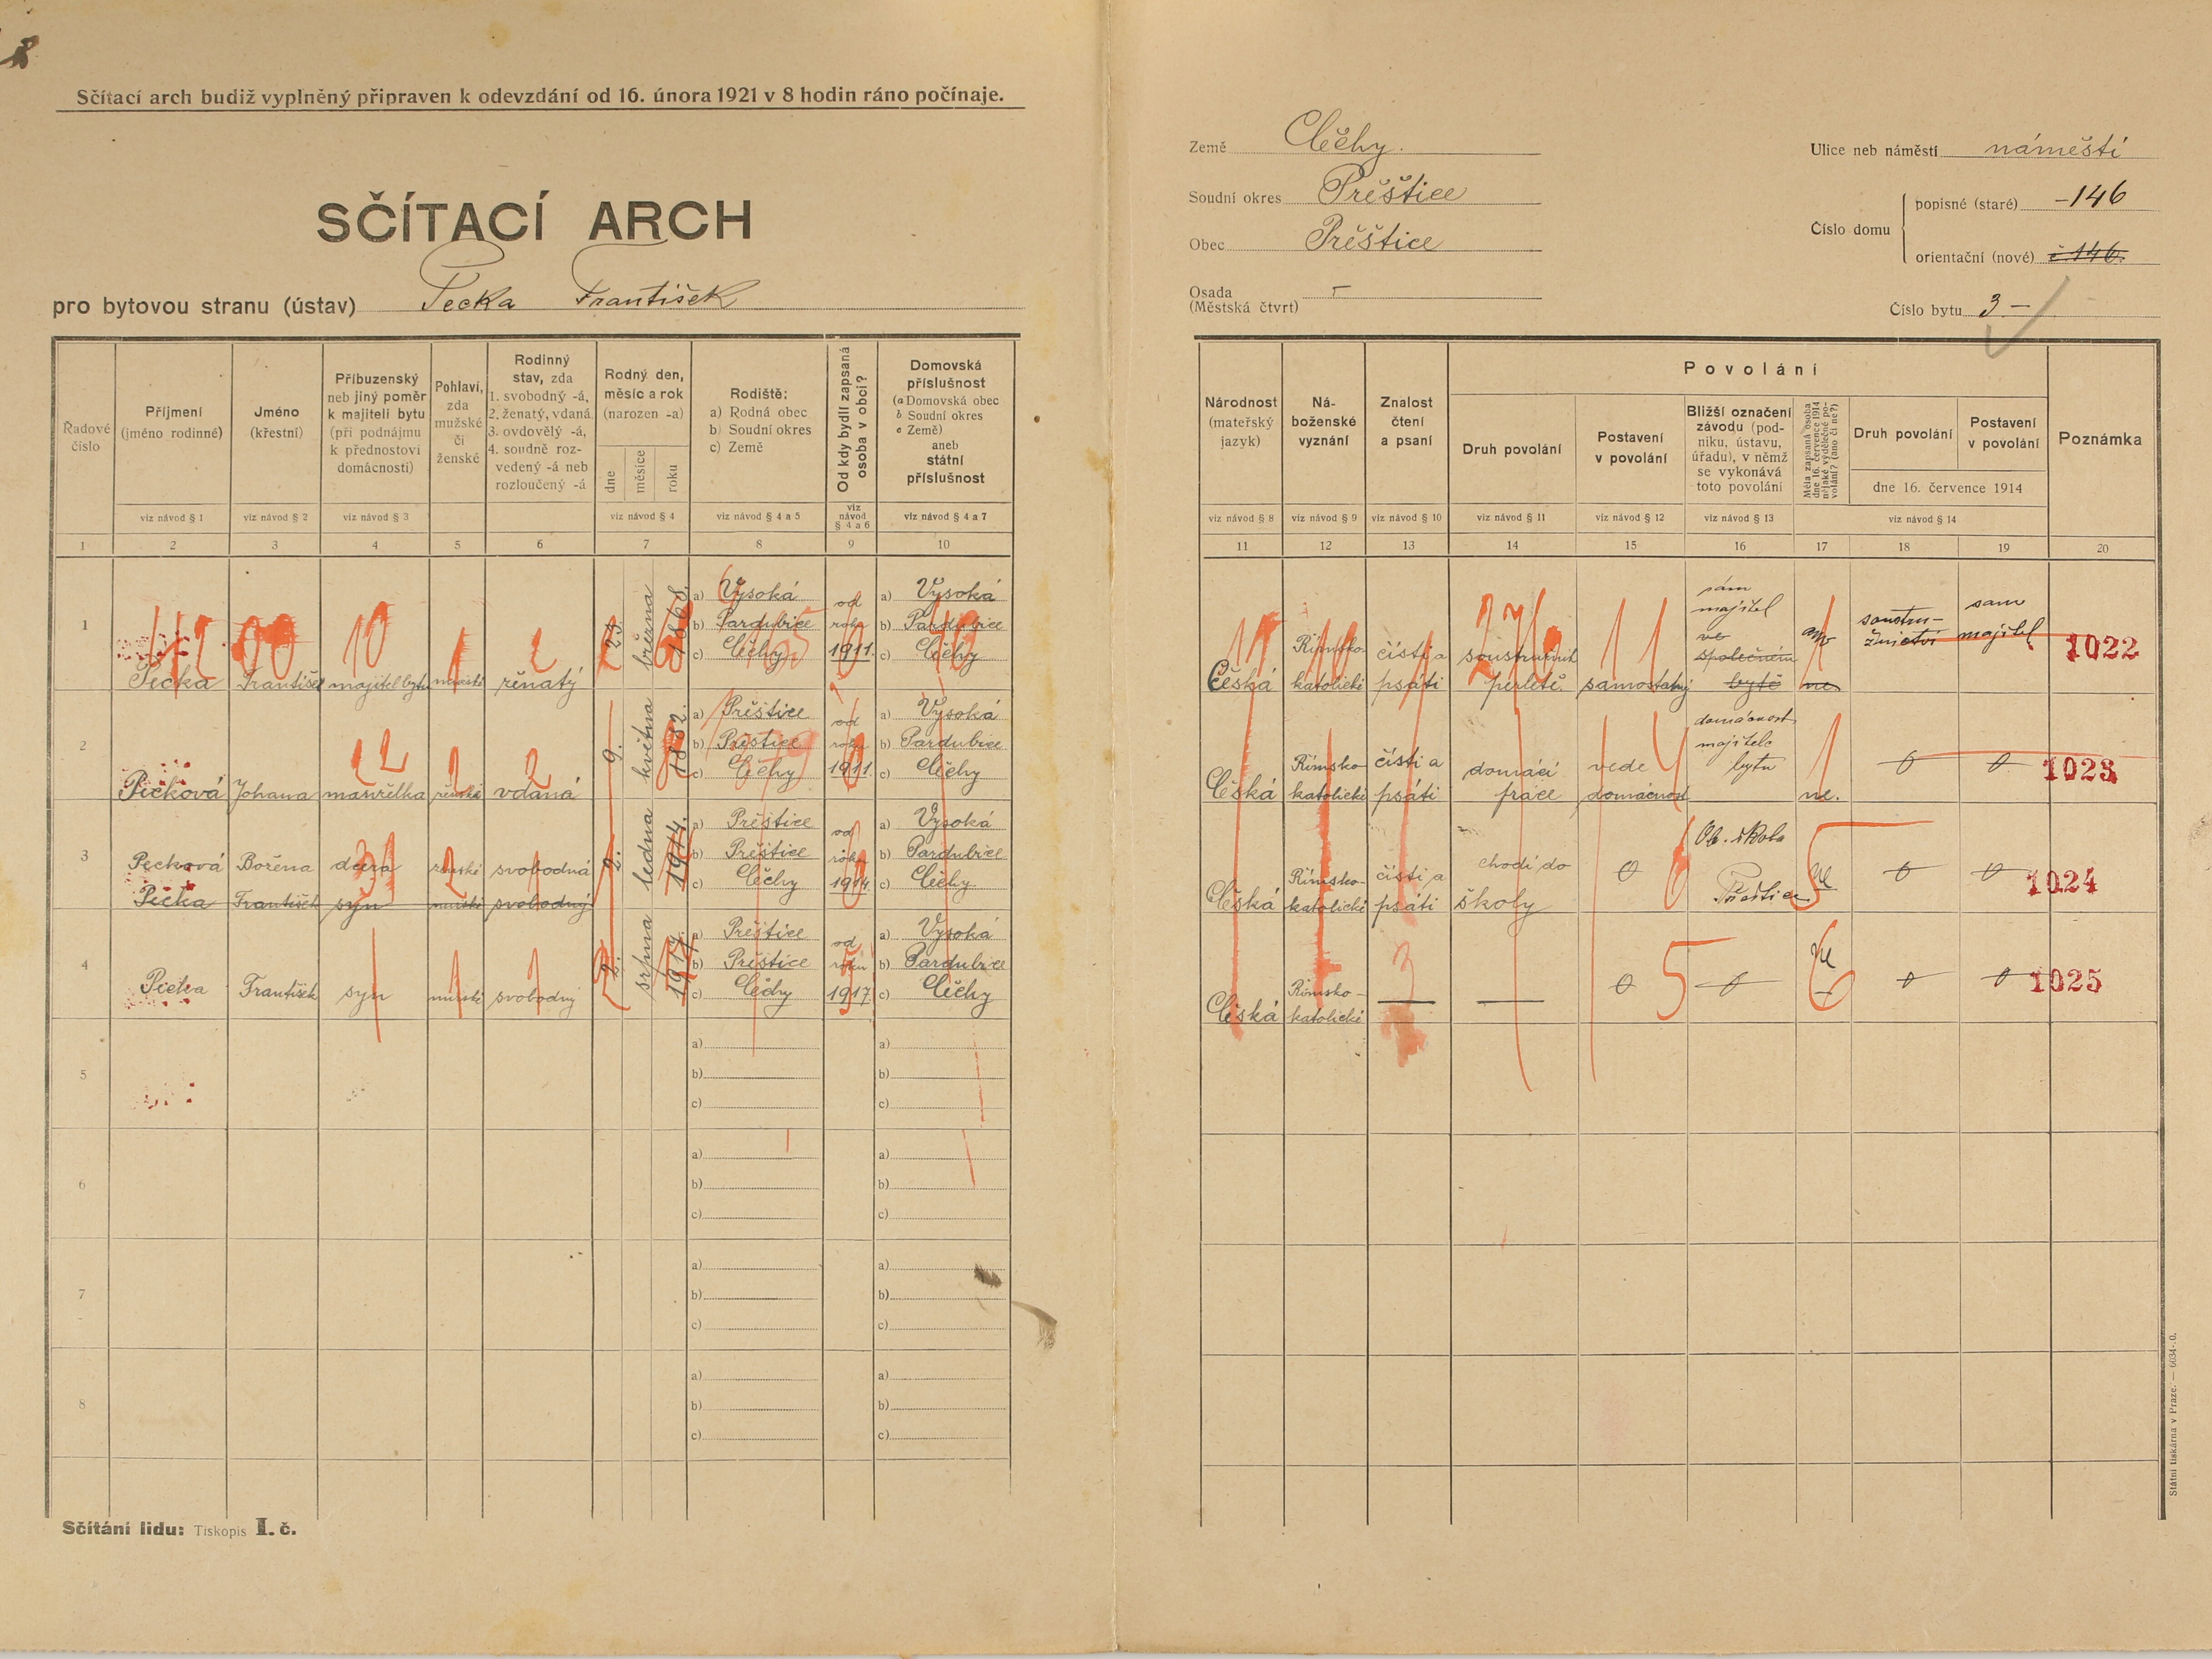 Sčítací arch budiž vyplněný připraven k odevzdání od 16. února 1921 v 8 hodin ráno počínaje.
SČÍTACÍ ARCH
pro bytovou stranu (ústav) Pecka František
Země Čěchy.
Soudní okres Přěštice
Obec Přěštice
Osada
(Městská čtvrt) —
Ulice neb náměstí náměstí
Číslo domu
popisné (staré) —146
orientační (nové) č. 146.
Číslo bytu 3 —
Řadové číslo
Příjmení (jméno rodinné)
Jméno (křestní)
Příbuzenský neb jiný poměr k majiteli bytu (při podnájmu k přednostovi domácnosti)
Pohlaví, zda mužské či ženské
Rodinný stav, zda 1. svobodný -á, 2. ženatý, vdaná, 3. ovdovělý -á, 4. soudně rozvedený -á neb rozloučený -á
Rodný den, měsíc a rok (narozen -a)
dne měsíce roku
Rodiště: a) Rodná obec b) Soudní okres c) Země
Od kdy bydlí zapsaná osoba v obci?
Domovská příslušnost (a Domovská obec b Soudní okres c Země) aneb státní příslušnost
viz návod § 1 viz návod § 2 viz návod § 3 viz návod § 4 viz návod § 4 a 5 viz návod § 4 a 6 viz návod § 4 a 7
1 2 3 4 5 6 7 8 9 10
Národnost (mateřský jazyk)
Náboženské vyznání
Znalost čtení a psaní
Povolání
Druh povolání
Postavení v povolání
Bližší označení závodu (podniku, ústavu, úřadu), v němž se vykonává toto povolání
Měla zapsaná osoba dne 16. července 1914 nějaké výdělečné povolání? (ano či ne?)
Druh povolání
Postavení v povolání
dne 16. července 1914
Poznámka
viz návod § 8 viz návod § 9 viz návod § 10 viz návod § 11 viz návod § 12 viz návod § 13 viz návod § 14
11 12 13 14 15 16 17 18 19 20
1 Pecka František majitel bytu mužské ženatý 23. března 1868.
a) Vysoká b) Pardubice c) Čěchy
od roku 1911.
a) Vysoká b) Pardubice c) Čěchy
Česká Římsko-katolické čísti a psáti soustružník perletě. samostatný
sám majitel ve společném bytě
ano ne
soustružnictví sam majitel 1022
2 Pěčková Johana manželka ženské vdaná 9. května 1882.
a) Přěštice b) Přěštice c) Čěchy
od roku 1911.
a) Vysoká b) Pardubice c) Čěchy
Čěská Římsko katolické čísti a psáti domácí práce vede domácnost
domácnost majitele bytu
ne. 0 0 1023
3 Pecková Božena dcera ženské svobodná 2. ledna 1914.
Pěčka František syn mužské svobodný
a) Přěštice b) Přěštice c) Čěchy
od roku 1914.
a) Vysoká b) Pardubice c) Čěchy
Čěská Římsko-katolické čísti a psáti chodí do školy 0
Ob. škola Přeštice
ne 0 0 1024
4 František syn mužské svobodný srpna 1917.
a) Přěštice b) Přěštice c) Čěchy
od roku 1917.
a) Vysoká b) Pardubice c) Čěchy
Čěská Římsko-katolické — — 0 0 ne 0 0 1025
5 a) b) c) a) b) c)
6 a) b) c) a) b) c)
7 a) b) c) a) b) c)
8 a) b) c) a) b) c)
Sčítání lidu: Tiskopis I. č.
Státní tiskárna v Praze. — 6034-.0.